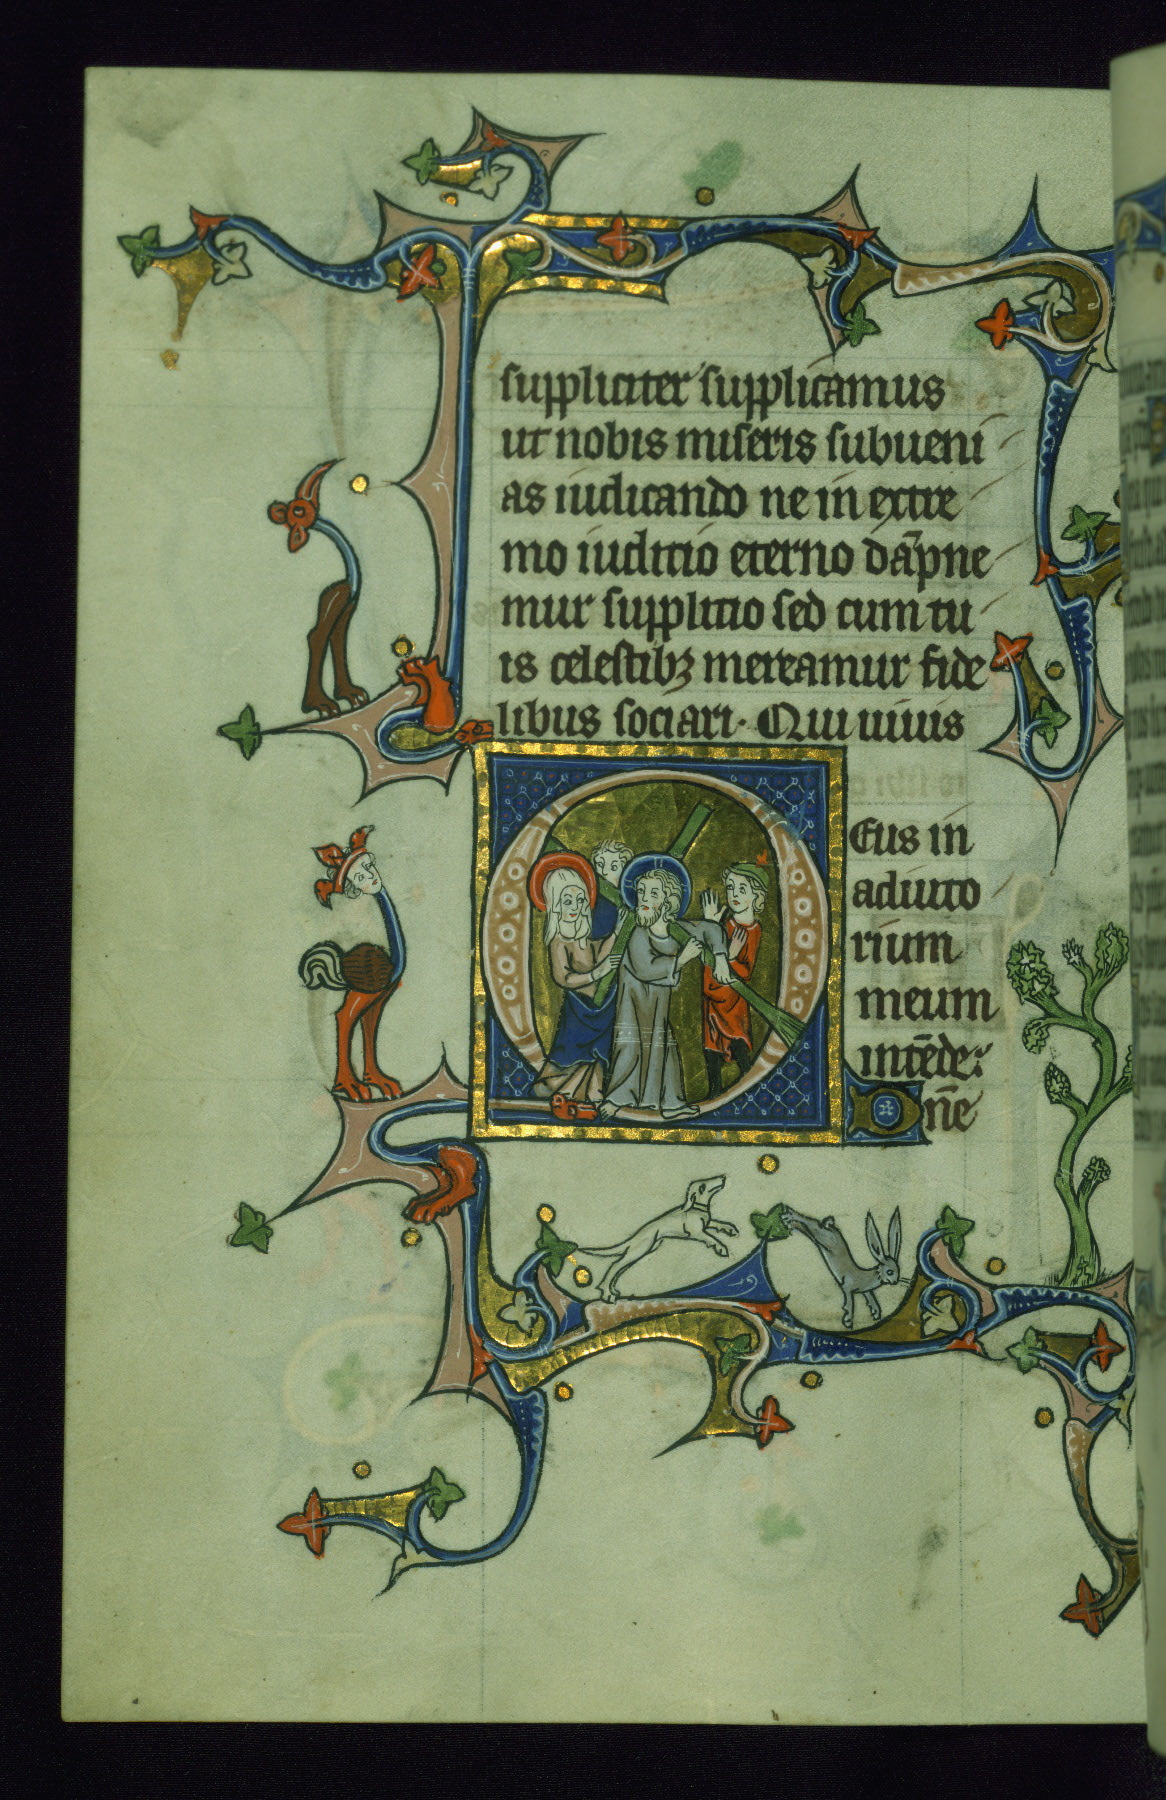 suppliciter supplicamus
ut nobis miseris subueni
as iudicando ne in extre
mo iudicio eterno da̅pne
mur supplicio sed cum tu
is celestibꝫ mereamur fide
libus sociari· Qui uiuis
Deus in
adiuto
rium
meum
inte̅de:
Dn̅e